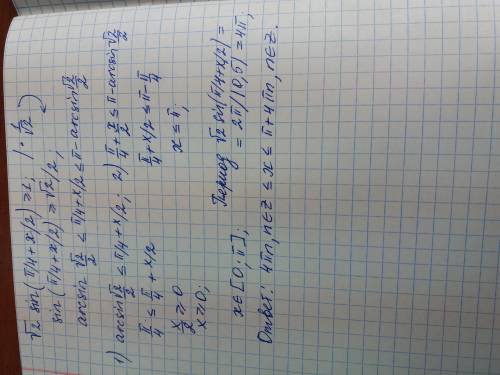 √2 sin(π/4 + x/2) ≥ 1; | · 1/√2
sin(π/4 + x/2) ≥ √2/2;
arcsin √2/2 ≤ π/4 + x/2 ≤ π - arcsin √2/2
1) arcsin √2/2 ≤ π/4 + x/2; 2) π/4 + x/2 ≤ π - arcsin √2/2
π/4 ≤ π/4 + x/2 π/4 + x/2 ≤ π - π/4
x/2 ≥ 0 x ≤ π;
x ≥ 0;
x ∈ [0; π]; Период √2 sin(π/4 + x/2) =
= 2π/(0,5) = 4π;
Ответ: 4πn, n∈z ≤ x ≤ π + 4πn, n∈z.